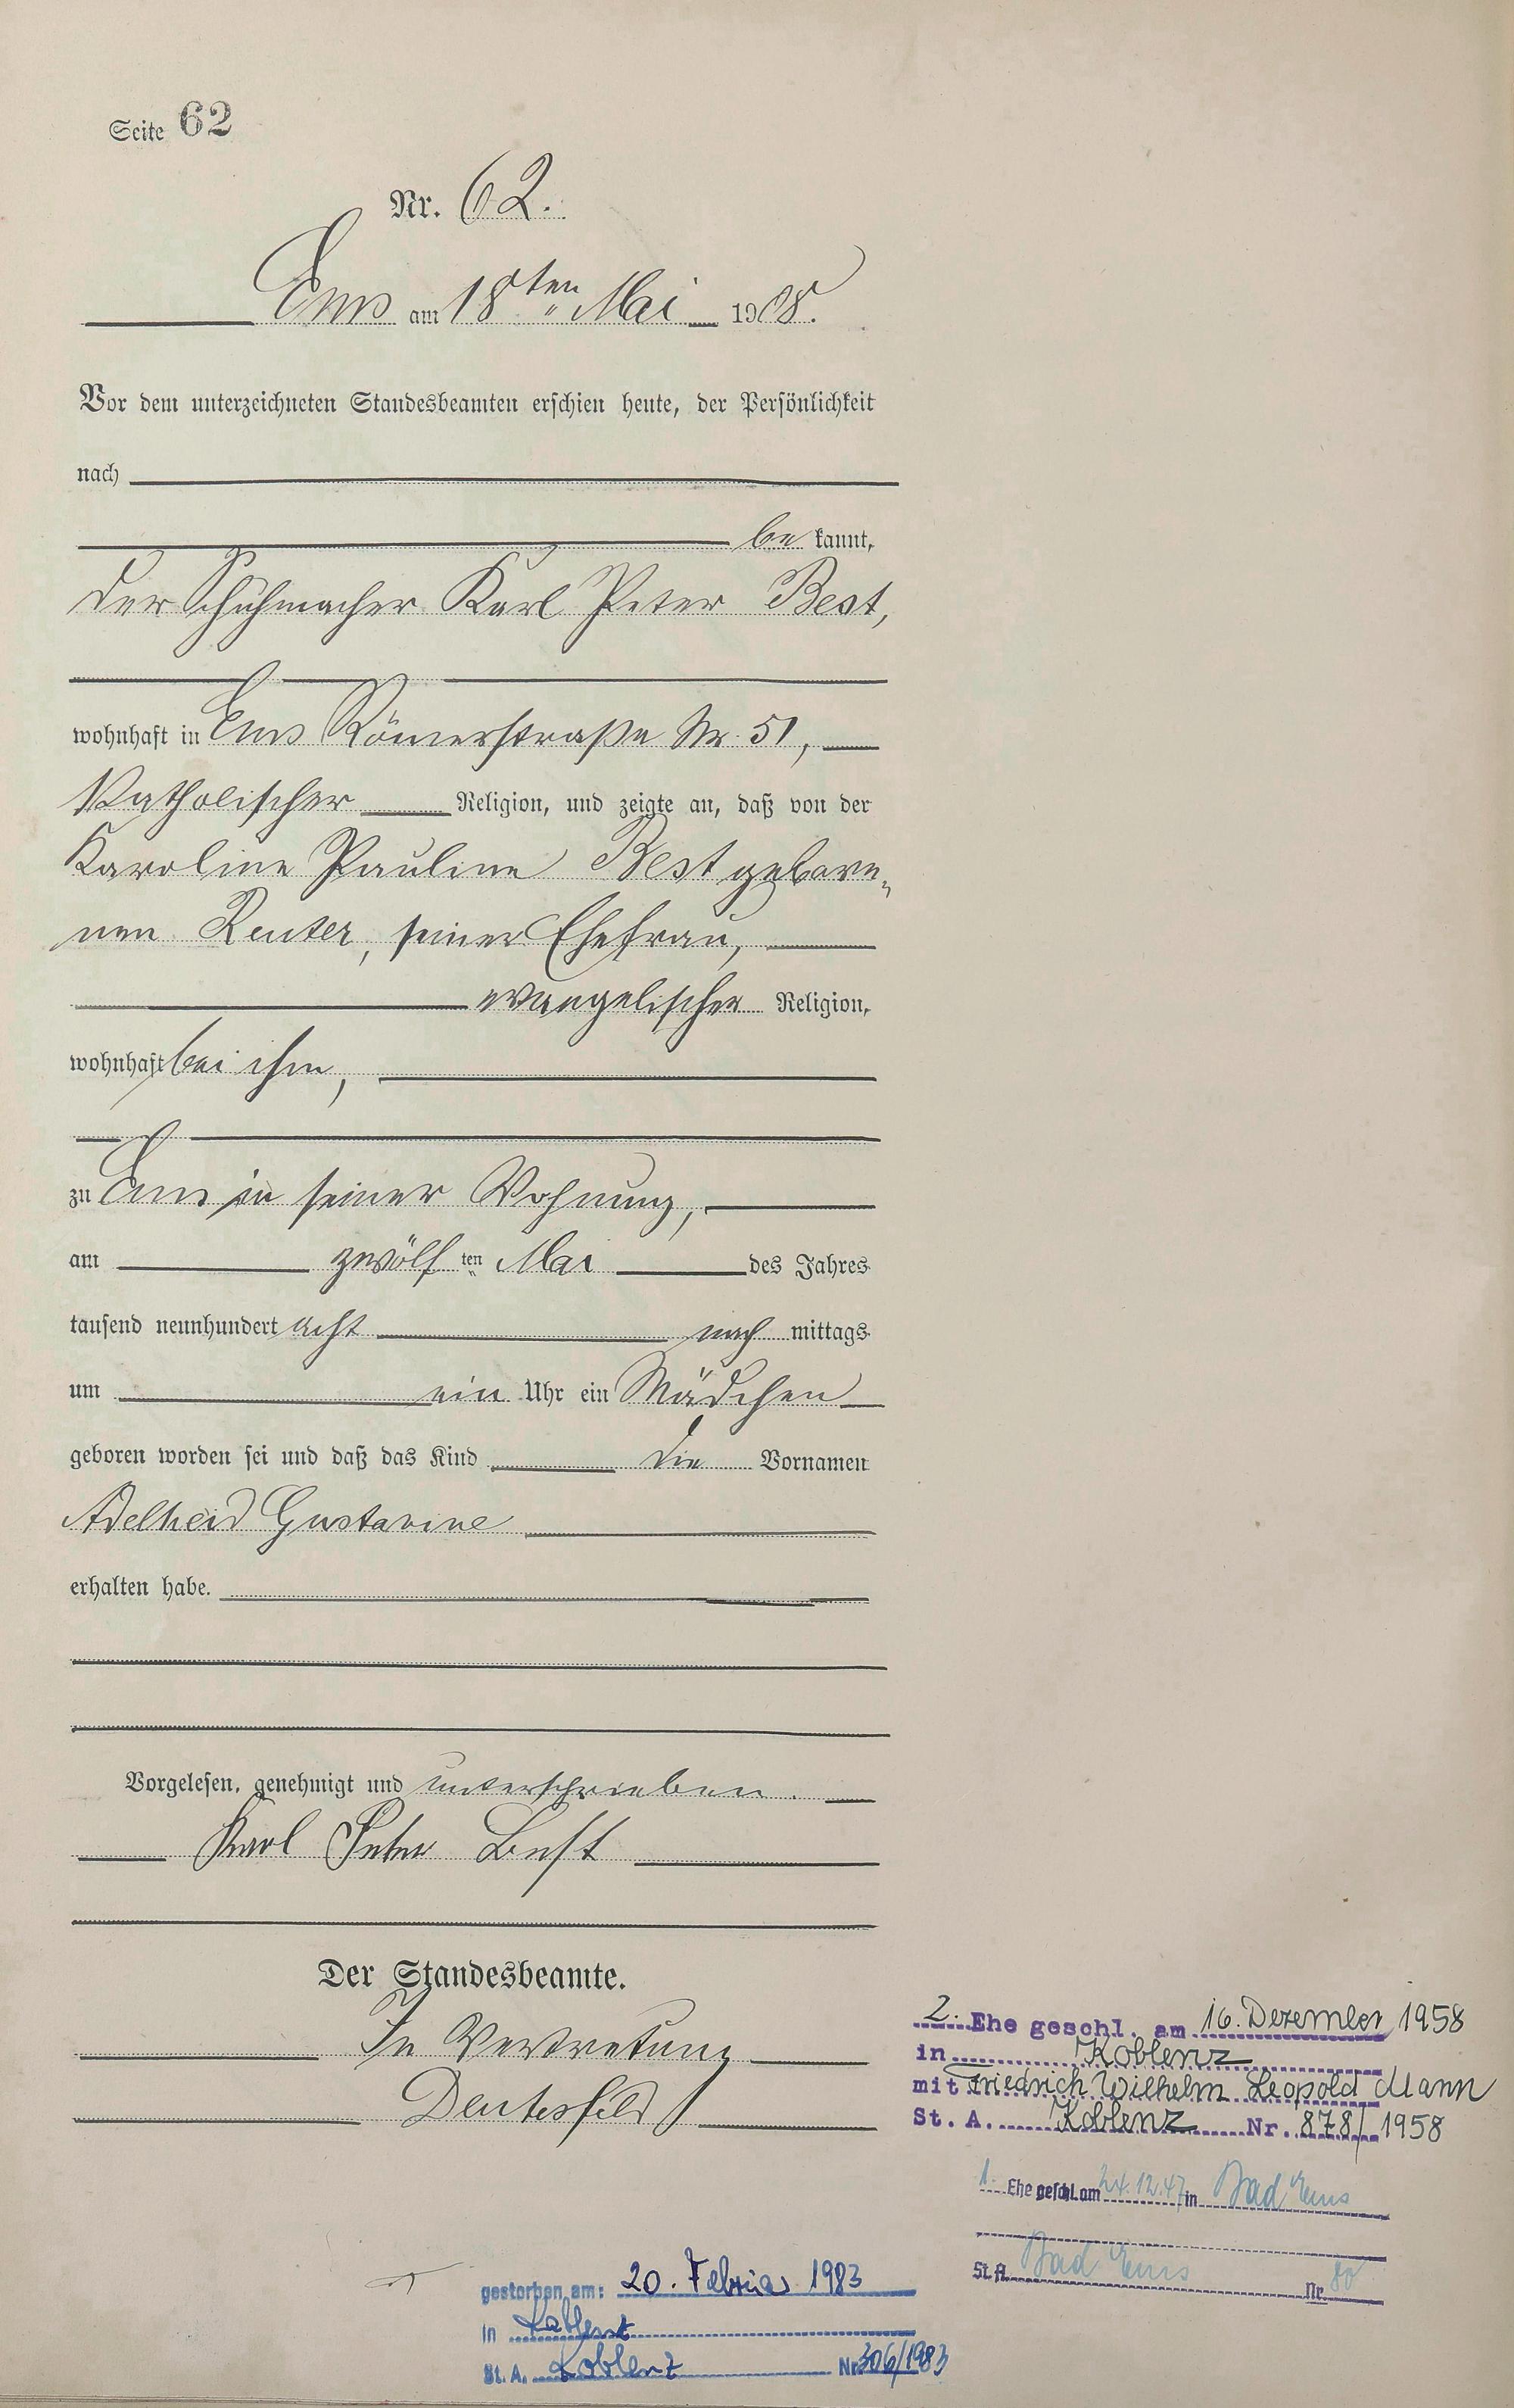 Seite 62
Nr. 62.
Ems am 18ten Mai 1908.
Vor dem unterzeichneten Standesbeamten erschien heute, der Persönlichkeit
nach
be kannt,
der Schuhmacher Karl Peter Best,
wohnhaft in Ems Römerstraße Nr. 51,
Katholischer Religion, und zeigte an, daß von der
Karoline Pauline Best gebore-
nen Reuter, seiner Ehefrau,
evangelischer Religion,
wohnhaft bei ihm,
zu Ems in seiner Wohnung,
am zwölf ten Mai des Jahres
tausend neunhundert acht nach mittags
um ein Uhr ein Mädchen
geboren worden sei und daß das Kind die Vornamen
Adelheid Gustavine
erhalten habe.
Vorgelesen, genehmigt und unterschrieben.
Karl Peter Best
Der Standesbeamte.
In Vertretung
2. Ehe geschl. am 16. Dezember 1958
in Koblenz
mit Friedrich Wilhelm Leopold Mann
St. A. Koblenz Nr. 878/1958
1. Ehe geschl. am 24.12.47 in Bad Ems
St. A. Bad Ems Nr. 80
gestorben am: 20. Februar 1983
in Koblenz
St. A. Koblenz Nr 306/1983